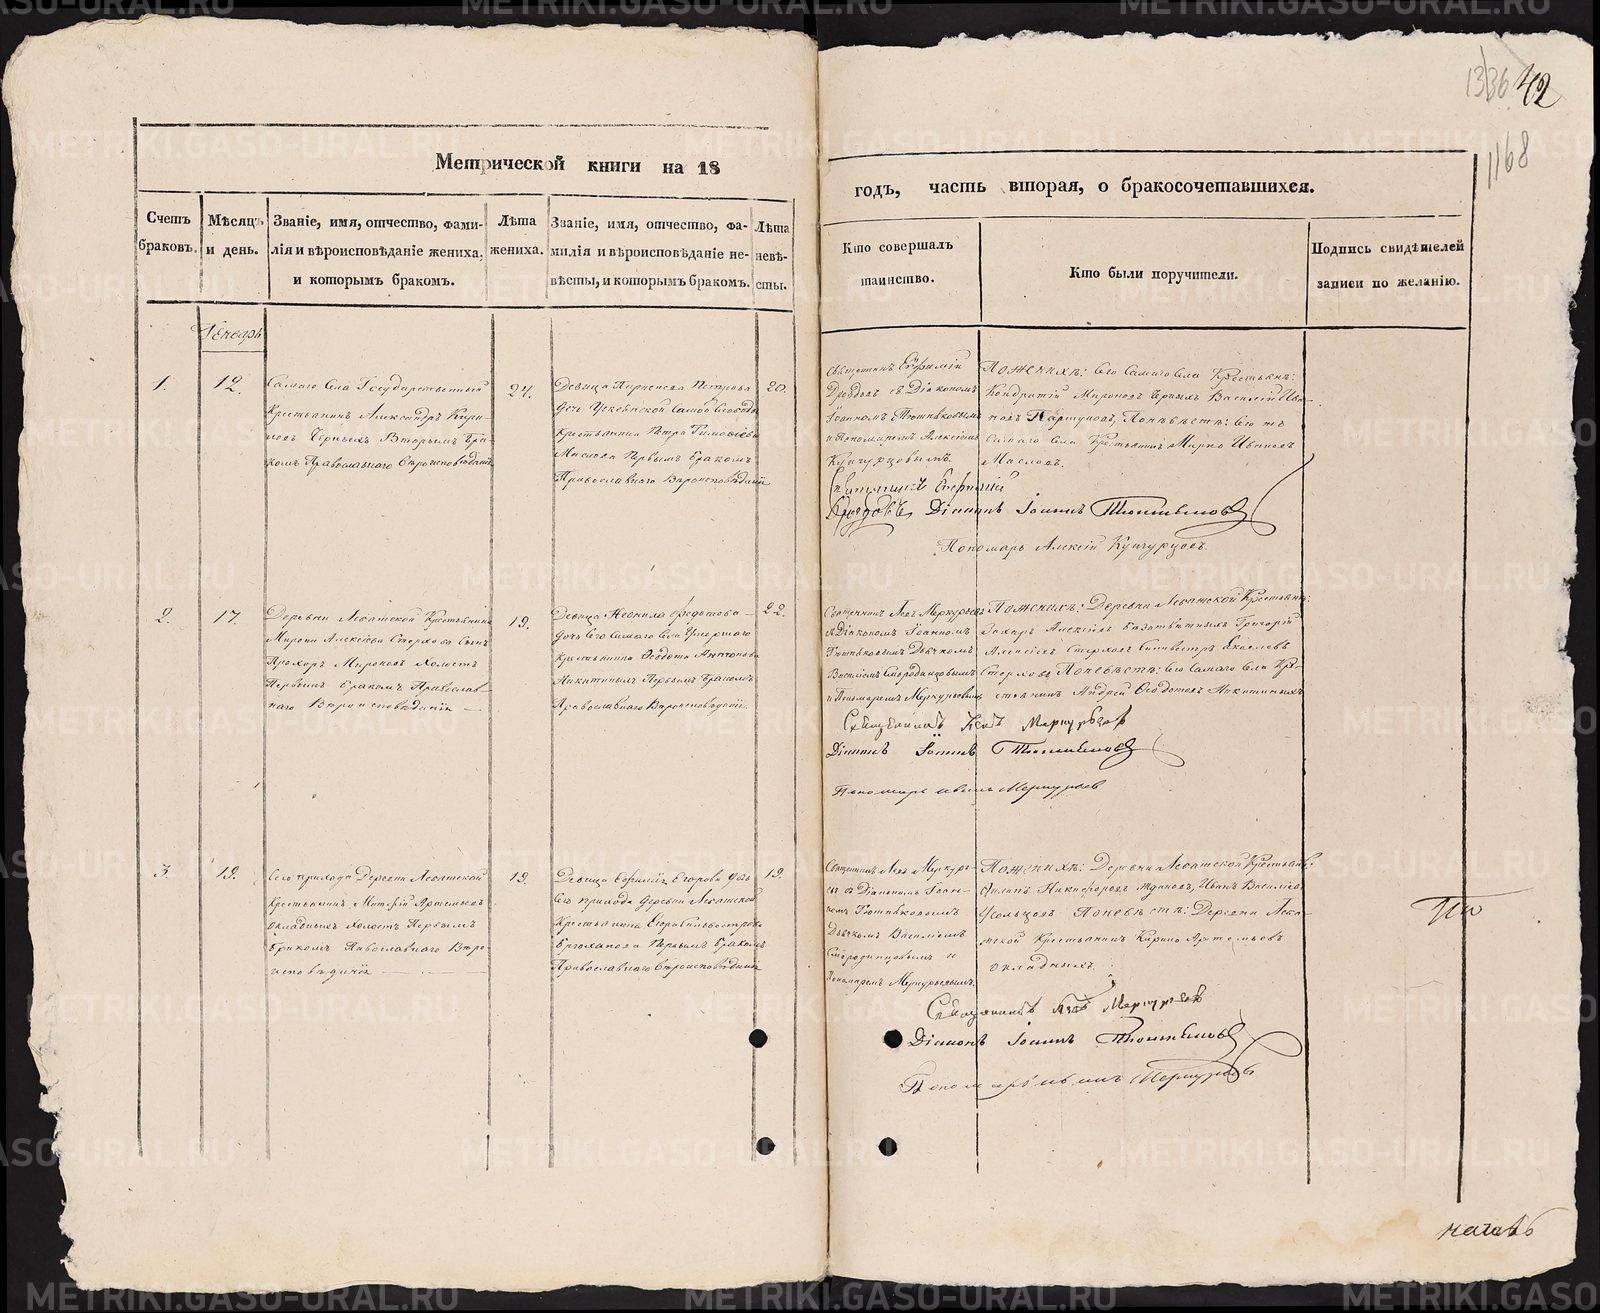 METRIKI.GASO-URAL.RU
42
1168
Метрической книги на 18
годъ, часть вторая, о бракосочетавшихся.
Счетъ браковъ.
Мѣсяцъ и день.
Званіе, имя, отчество, фами-
лія и вѣроисповѣданіе жениха,
и которымъ бракомъ.
Лѣта жениха.
Званіе, имя, отчество, фа-
милія и вѣроисповѣданіе не-
вѣсты, и которымъ бракомъ.
Лѣта невѣ-
сты.
Кто совершалъ
таинство.
Кто были поручители.
Подпись свидѣтелей
записи по желанію.
Генварь
1.
12.
Самаго Села Государственный
Крестьянинъ Александръ Кири-
ловъ Черныхъ Вторымъ бра-
комъ Православнаго Вѣроисповѣданія
24.
Девица Петрова
дочь Слободы
Крестьянина Петра Тимофѣева
Маслова Первымъ бракомъ
Православнаго Вѣроисповѣданія
20.
Священникъ Евфимій
съ Діакономъ
Іоанномъ Тюшняковымъ
и Пономаремъ Алексіемъ
Кунгурцовымъ.
По женихѣ: Сего Самаго Села Крестьяне:
Кондратій Мироновъ Черныхъ Василій Ива-
новъ Паршуковъ, По невѣстѣ: Сего жъ
Самаго Села Крестьянинъ Марко Ивановъ
Масловъ.
Священникъ Евфимій
Діаконъ Іоаннъ Тюшняковъ
Пономарь Алексій Кунгурцовъ.
2.
17.
Деревни Крестьянина
Мирона Алексіева Стерхова Сынъ
Прохоръ Мироновъ Холостъ
Первымъ бракомъ Православ-
наго Вѣроисповѣданія
19.
Девица Неонила Федотова
дочь Сего Самаго Села Умершаго
Крестьянина Федота Антонова
Никитиныхъ Первымъ бракомъ
Православнаго Вѣроисповѣданія.
22.
Священникъ Левъ Меркурьевъ
съ Діакономъ Іоанномъ
Тюшняковымъ Дьячкомъ
Василіемъ Смородинцовымъ
и Пономаремъ Меркурьевымъ
По женихѣ: Деревни Крестьяне:
Захаръ Алексіевъ Григорій
Алексіевъ Стерховъ Яковлевъ
Стерховъ По невѣстѣ: Сего Самаго Села Кре-
стьянинъ Андрей Федотовъ Никитиныхъ
Священникъ Левъ Меркурьевъ
Діаконъ Іоаннъ Тюшняковъ
Пономарь Иванъ Меркурьевъ
3.
19.
Сего прихода Деревни
Крестьянинъ Артемьевъ
Окладныхъ Холостъ Первымъ
бракомъ Православнаго Вѣро-
исповѣданія
19.
Девица Егорова дочь
Сего прихода Деревни
Крестьянина Егора
Брюханова Первымъ бракомъ
Православнаго Вѣроисповѣданія
19.
Священникъ Левъ Меркурь-
евъ съ Діакономъ Іоан-
номъ Тюшняковымъ
Дьячкомъ Василіемъ
Смородинцовымъ и
Пономаремъ Меркурьевымъ.
По женихѣ: Деревни Крестьяне:
Филипъ Никифоровъ Ждановъ, Иванъ Василіевъ
Усольцовъ По невѣстѣ: Деревни
Крестьянинъ Кирило Артемьевъ
Окладныхъ.
Священникъ Левъ Меркурьевъ
Діаконъ Іоаннъ Тюшняковъ
Пономарь Иванъ Меркурьевъ